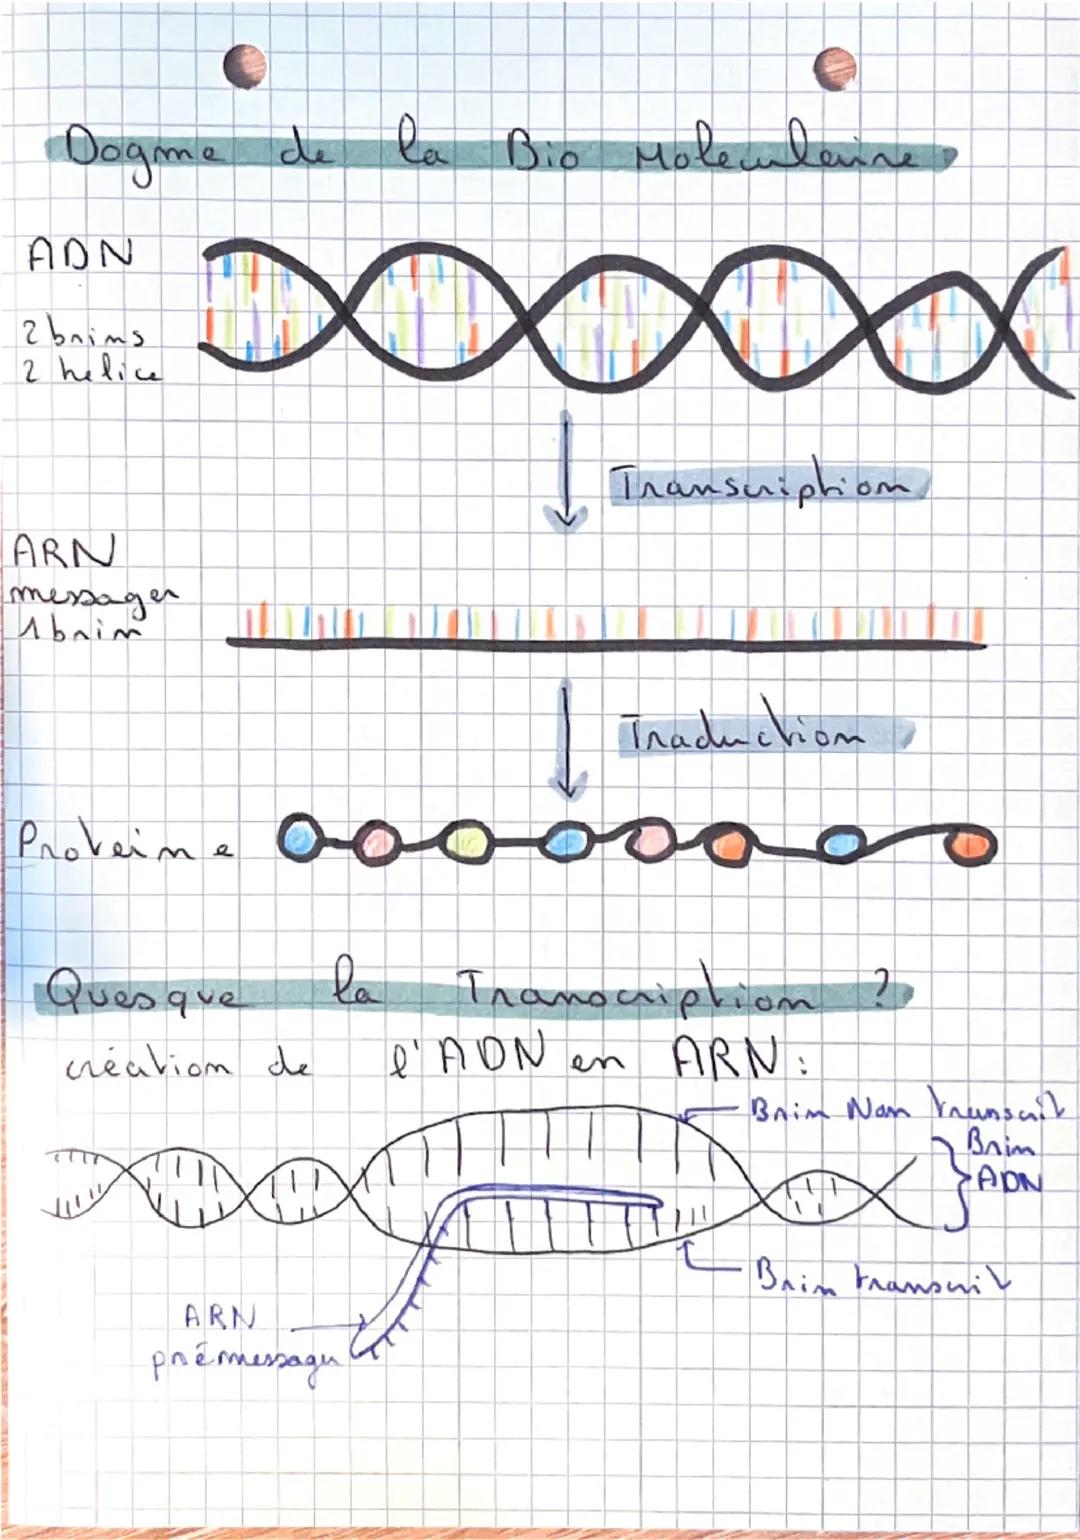 Dogme de la Bio Moleculaire
ADN
2 brins
2 helice
Transcription
ARN
messager
1 brin
Traduction
Proteine
Quesque la Transcription ?
création de l'ADN en ARN :
Brin Non transcrit
Brin
ADN
Brin transcrit
ARN
prémessager